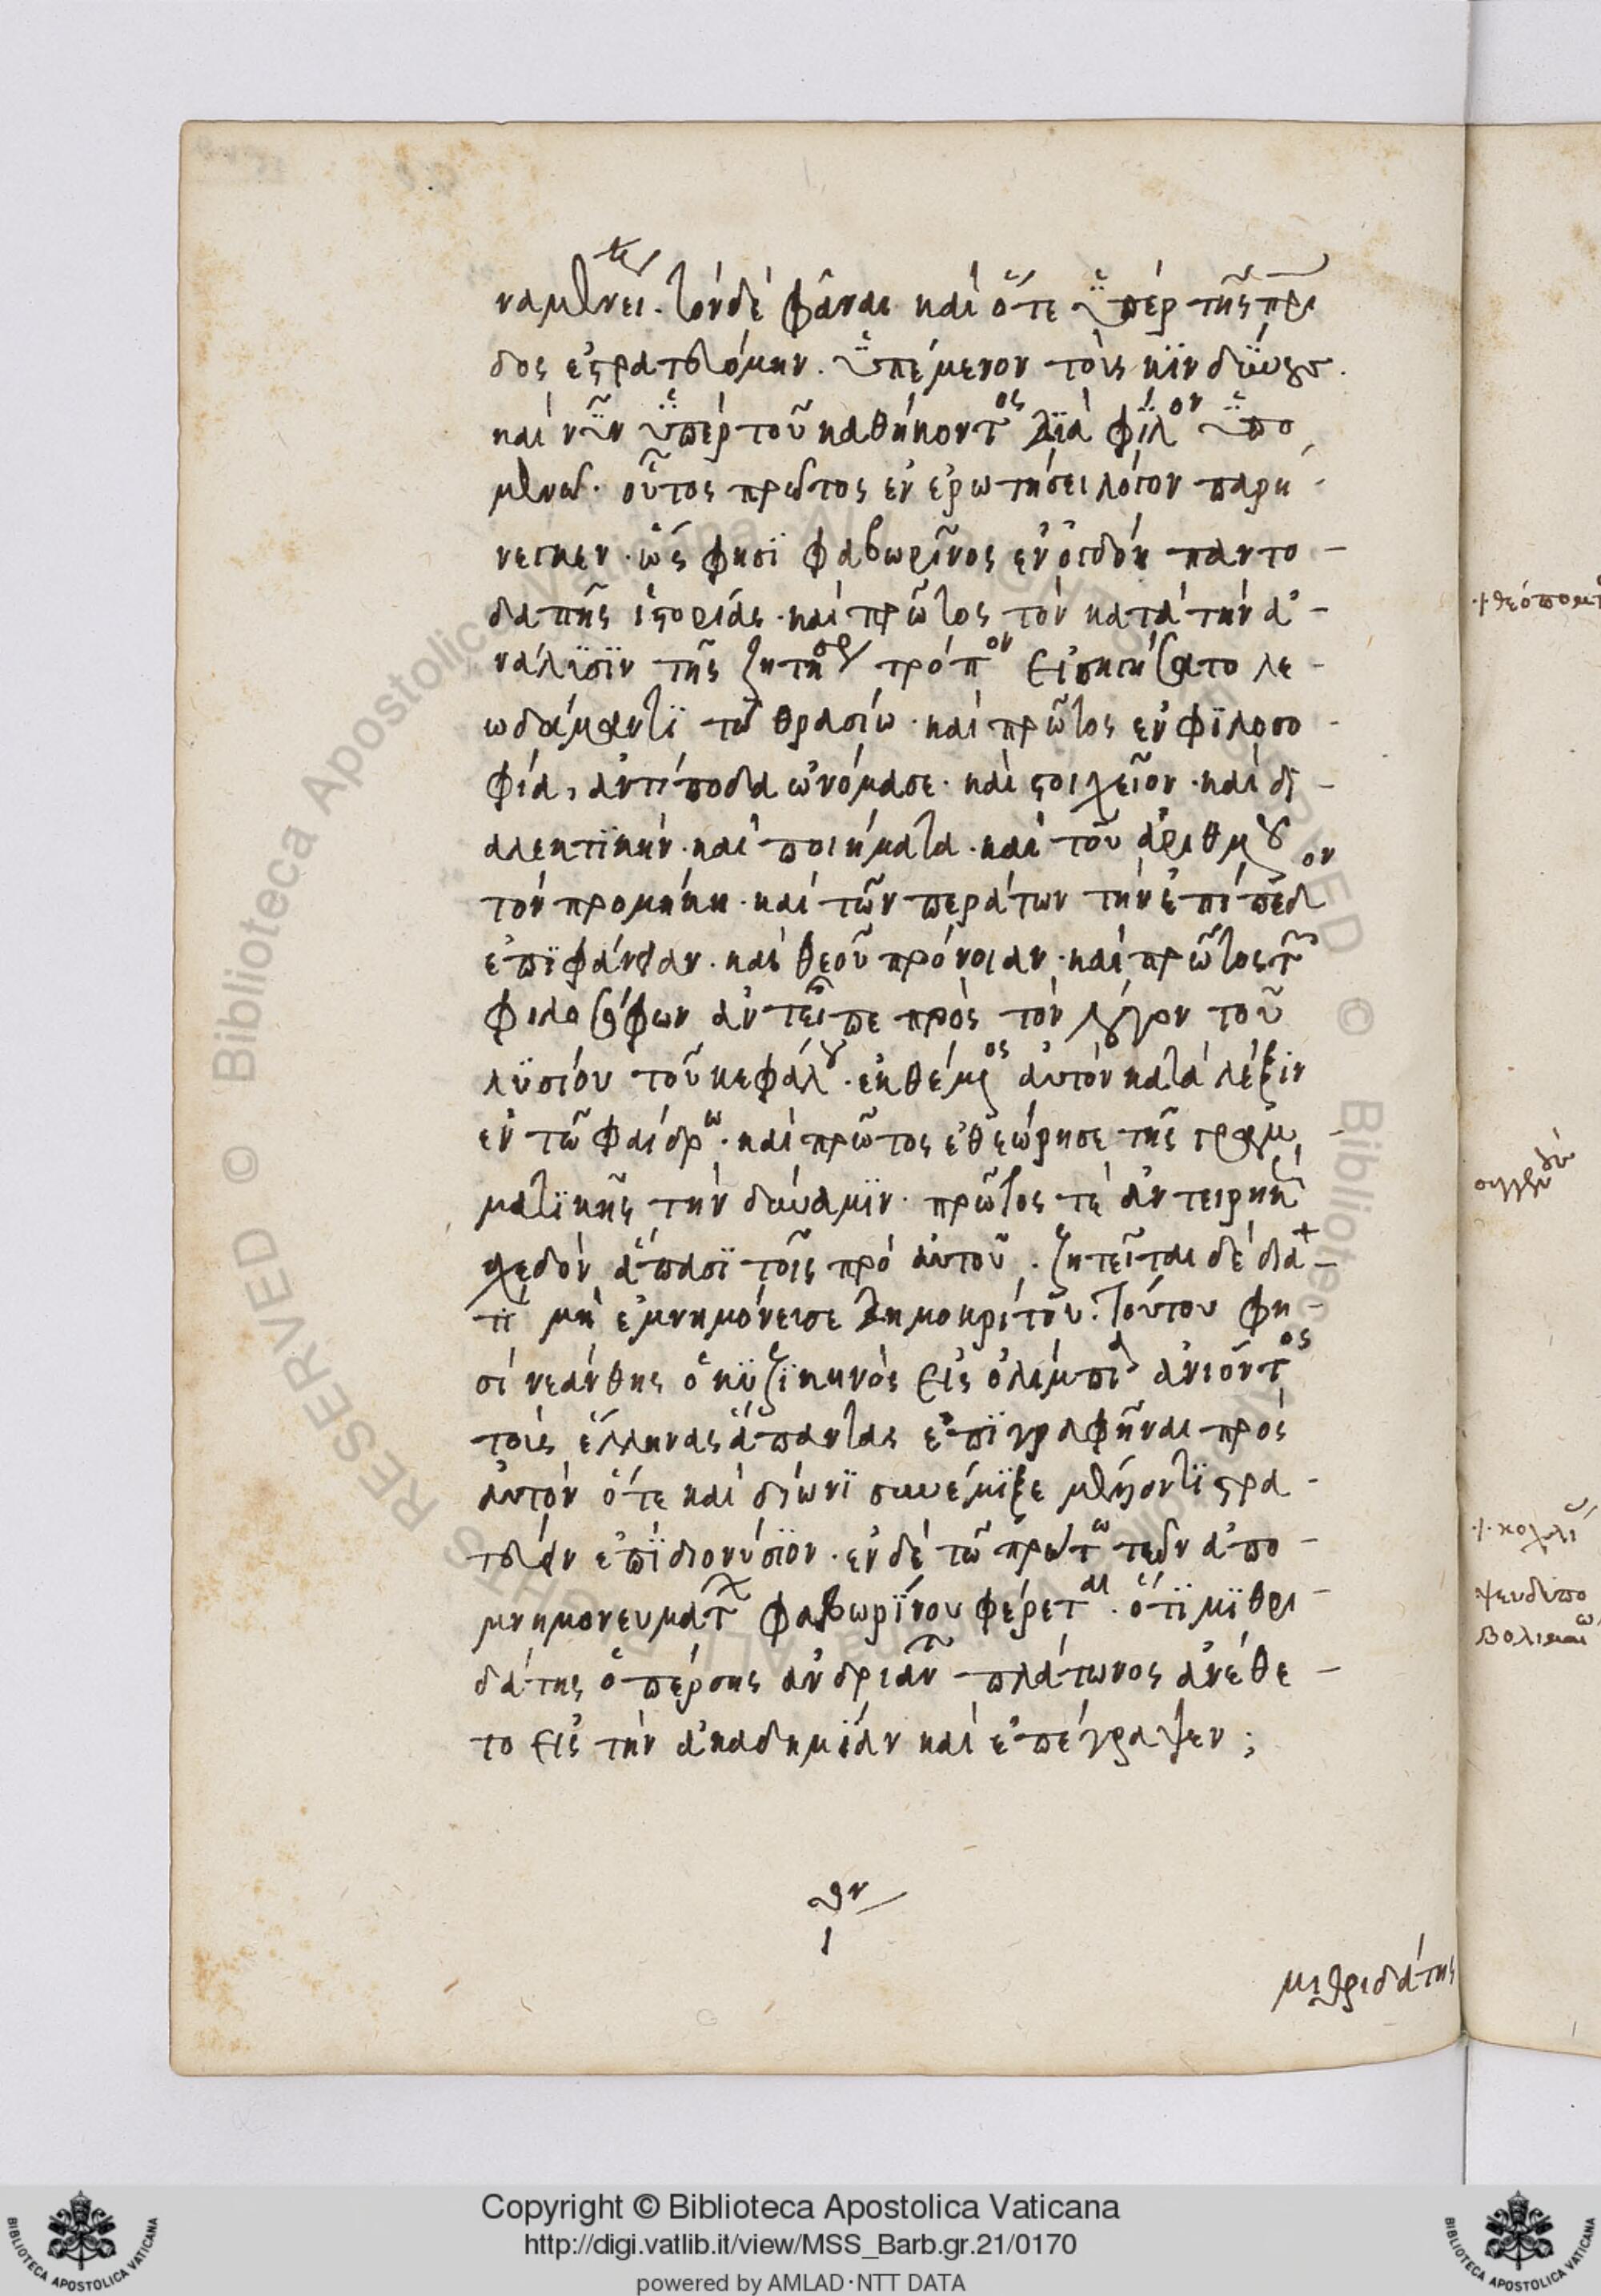 ναμένει. τὸν δὲ φάναι καὶ ὅτε ὑπὲρ τῆς πρι
δος ἐστρατευόμην. ὑπέμενον τοὺς κινδύνους.
καὶ νῦν ὑπὲρ τοῦ καθήκοντος διὰ φίλον ὑπο
μένω. οὗτος πρῶτος ἐν ἐρωτήσει λόγον παρή-
νεγκεν. ὥς φησι φαβωρῖνος ἐν ὀγδόῃ παντο-
δαπῆς ἱστορίας. καὶ πρῶτος τὸν κατὰ τὴν ἀ-
νάλυσιν τῆς ζητήσεως τρόπον εἰσηγήσατο λε-
ωδάμαντι τῷ θασίω. καὶ πρῶτος ἐν φιλοσο-
φία, ἀντίποδα ὠνόμασε. καὶ στοιχεῖον. καὶ δι-
αλεκτικήν. καὶ ποιήματα. καὶ τοῦ ἀριθμοῦ
τὸν προμήκη. καὶ τῶν περάτων τὴν ἐπίπεδον
ἐπιφάνειαν. καὶ θεοῦ πρόνοιαν. καὶ πρῶτος τῶν
φιλοσόφων ἀντεῖπε πρὸς τὸν λόγον τοῦ
λυσίου τοῦ κεφάλου. ἐκθέμενος αὐτὸν κατὰ λέξιν
ἐν τῷ φαίδρω. καὶ πρῶτος ἐθεώρησε τῆς γραμ-
ματικῆς τὴν δύναμιν. πρῶτος τὲ ἀντειρηκὼς
σχεδὸν ἅπασι τοῖς πρὸ αὐτοῦ. ζητεῖται δὲ δια-
τί μὴ ἐμνημόνευσε δημοκρίτου. τούτου φη-
σὶ νεάνθης ὁ κυζικηνὸς εἰς ὀλύμπια ἀνιόντος
τοὺς ἕλληνας ἅπαντας ἐπιγραφῆναι πρὸς
αὐτὸν ὅτε καὶ δίωνι συνέμιξε μέλλοντι στρα-
τεύειν ἐπὶ διονύσιον. ἐν δὲ τῷ πρώτω τῶν ἀπο-
μνημονευμάτων φαβωρίνου φέρεται. ὅτι μιθρι-
δάτης ὁ πέρσης ἀνδριάντα πλάτωνος ἀνέθε-
το εἰς τὴν ἀκαδημίαν καὶ ἐπέγραψεν;
μιθριδάτης
Copyright © Biblioteca Apostolica Vaticana
http://digi.vatlib.it/view/MSS_Barb.gr.21/0170
powered by AMLAD·NTT DATA